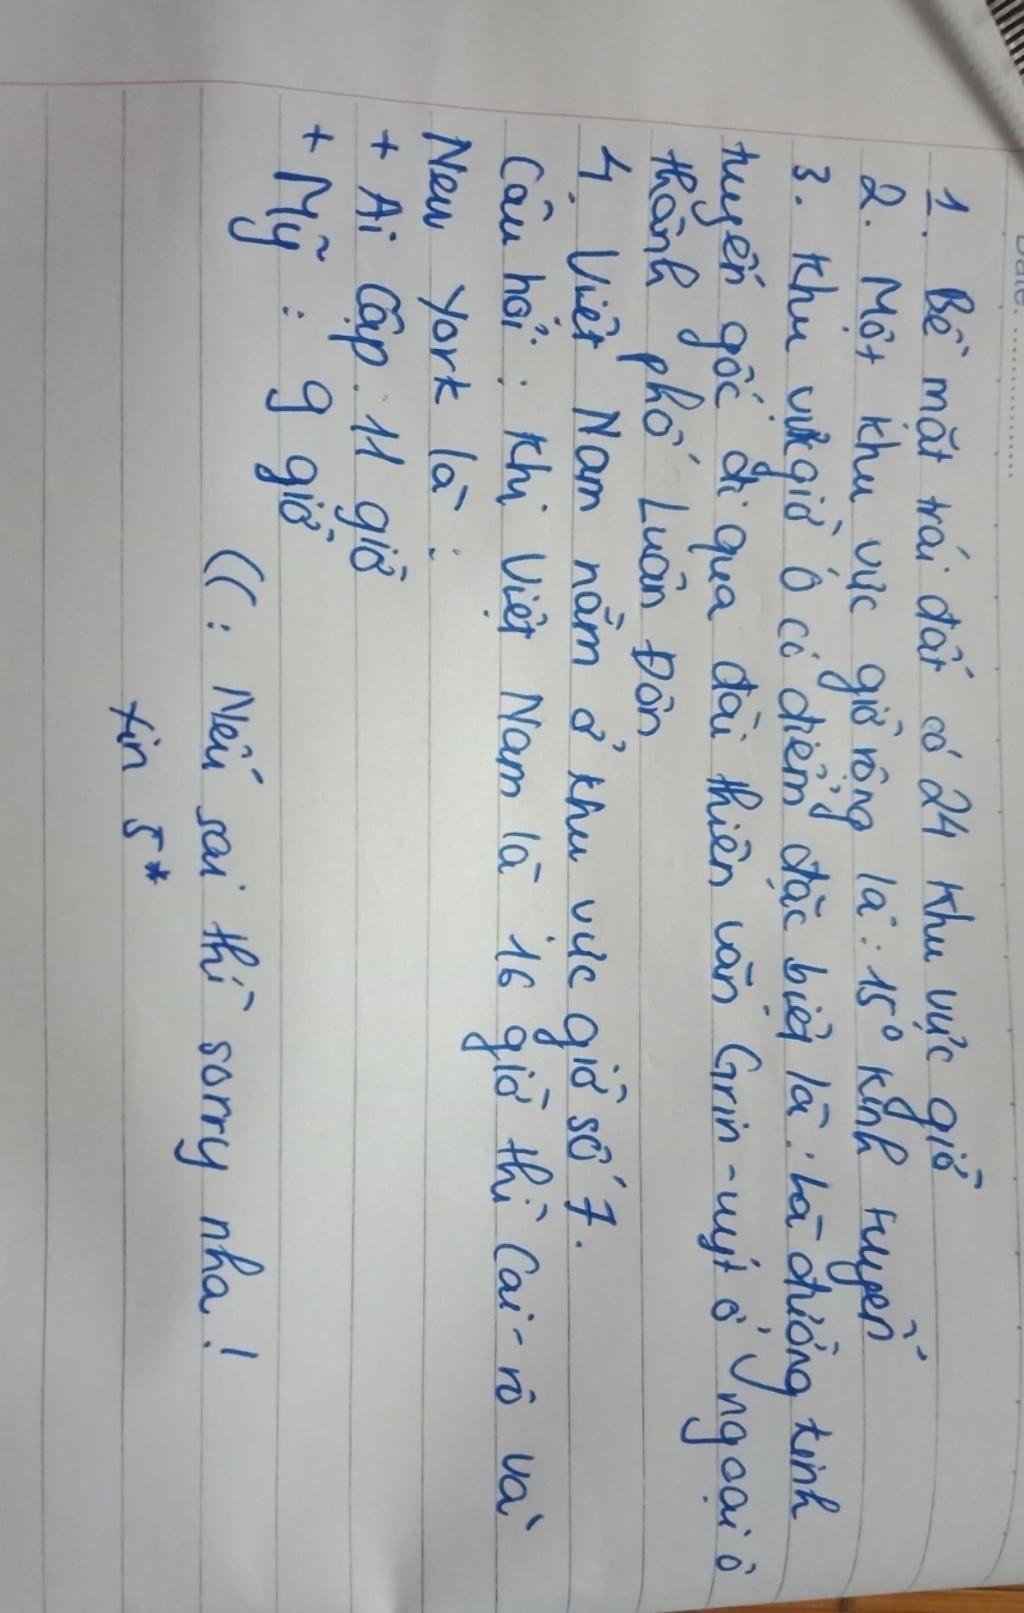 Date: ....................
1. Bề mặt trái đất có 24 khu vực giờ
2. Một khu vực giờ rộng là: 15° kinh tuyến
3. Khu vực giờ 0 có điểm đặc biệt là: Là đường kinh
tuyến gốc đi qua đài thiên văn Grin-uýt ở ngoại ô
thành phố Luân Đôn
4. Việt Nam nằm ở khu vực giờ số 7.
Câu hỏi: Khi Việt Nam là 16 giờ thì Cai-rô và
New York là:
+ Ai Cập: 11 giờ
+ Mỹ: 9 giờ
((: Nếu sai thì sorry nha!
xin 5*